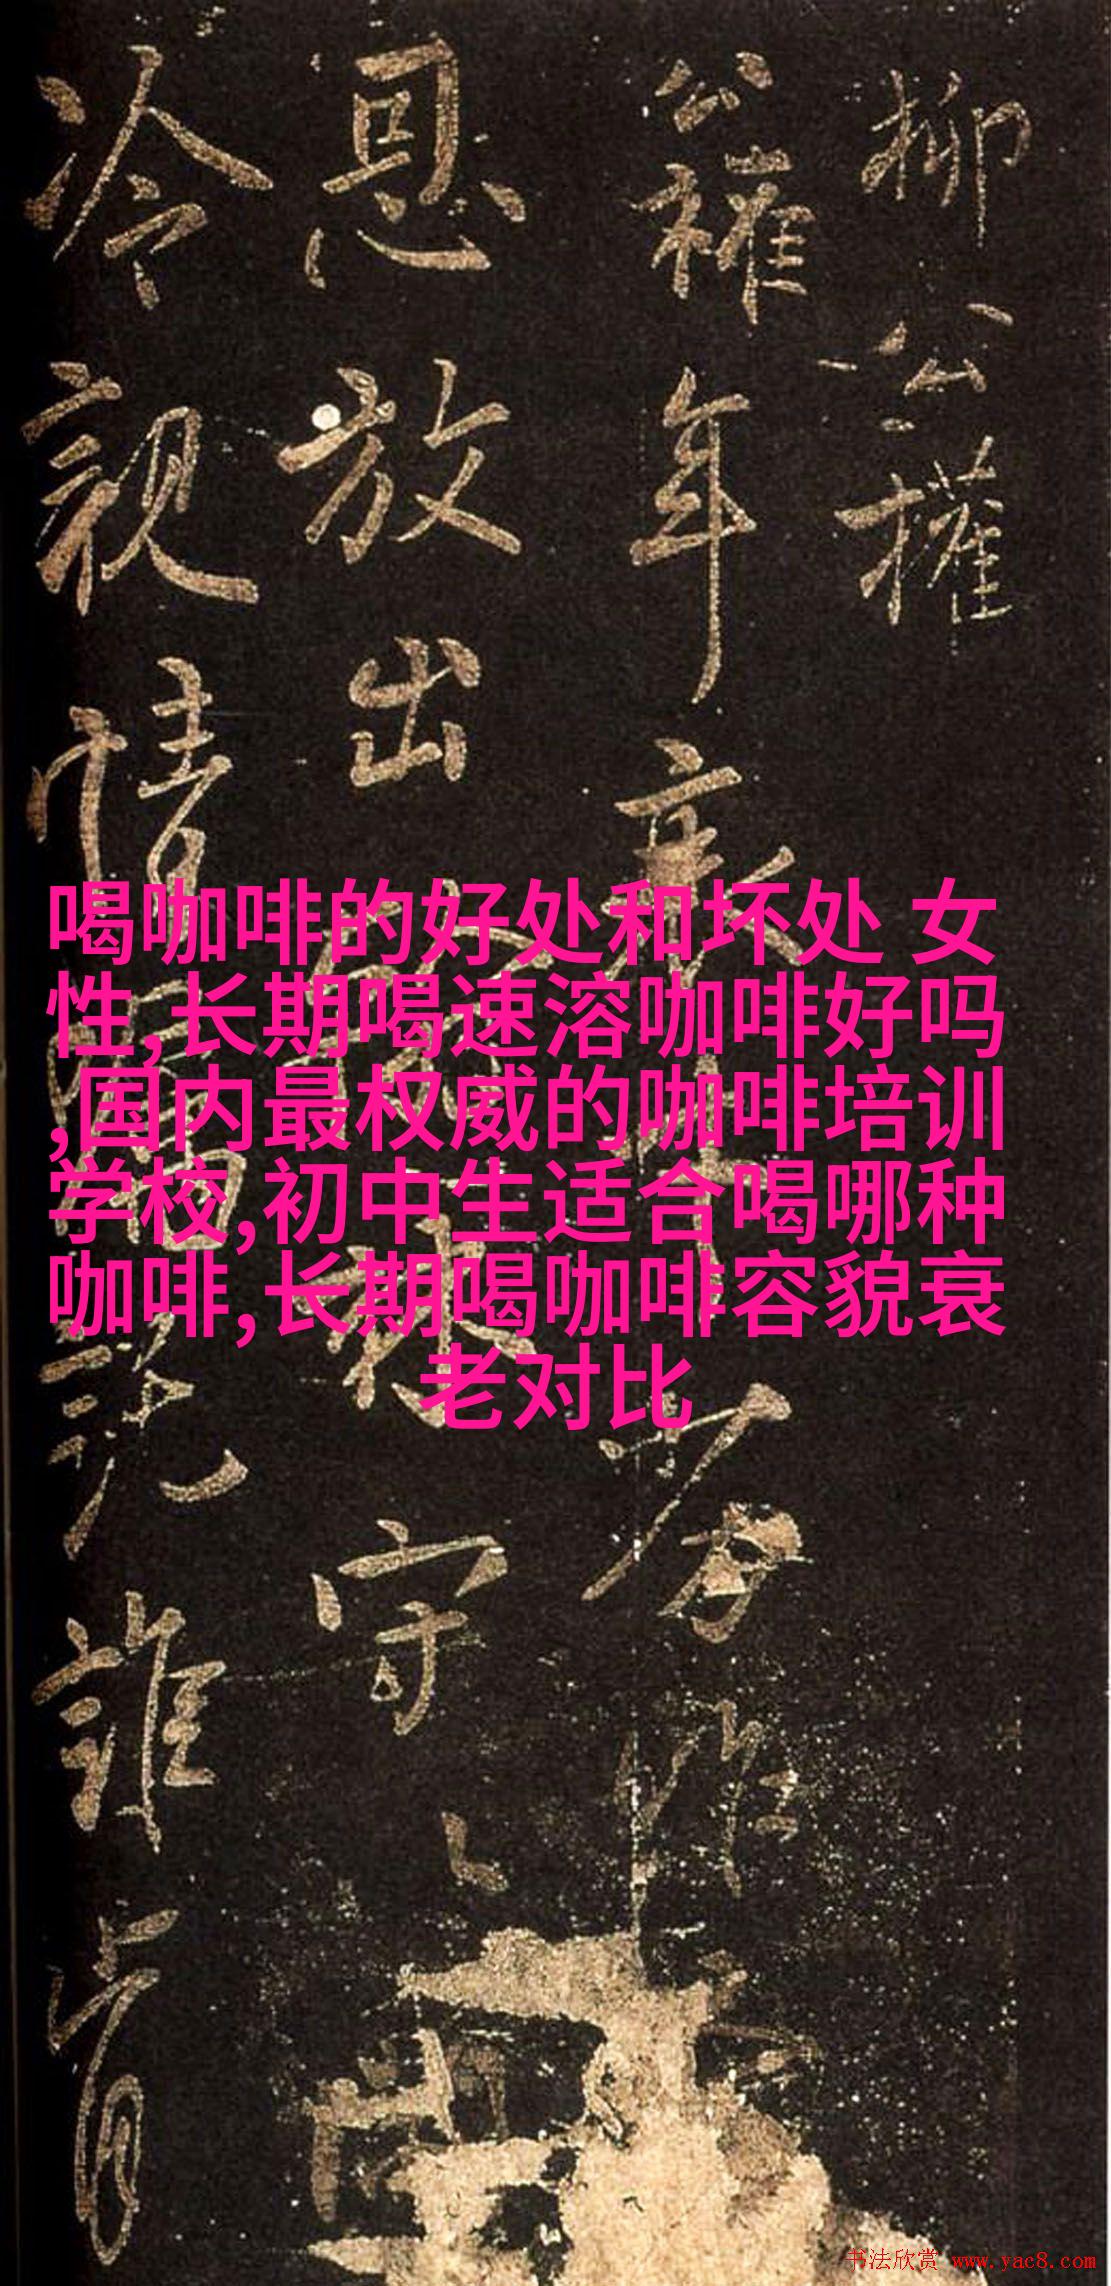 柳公權
公權年衰才劣昨
恩放出翰林守
冷親情囑託誰肯
喝咖啡的好处和坏处 女
性,长期喝速溶咖啡好吗
,国内最权威的咖啡培训
学校,初中生适合喝哪种
咖啡,长期喝咖啡容貌衰
老对比
书法欣赏 www.yac8.com